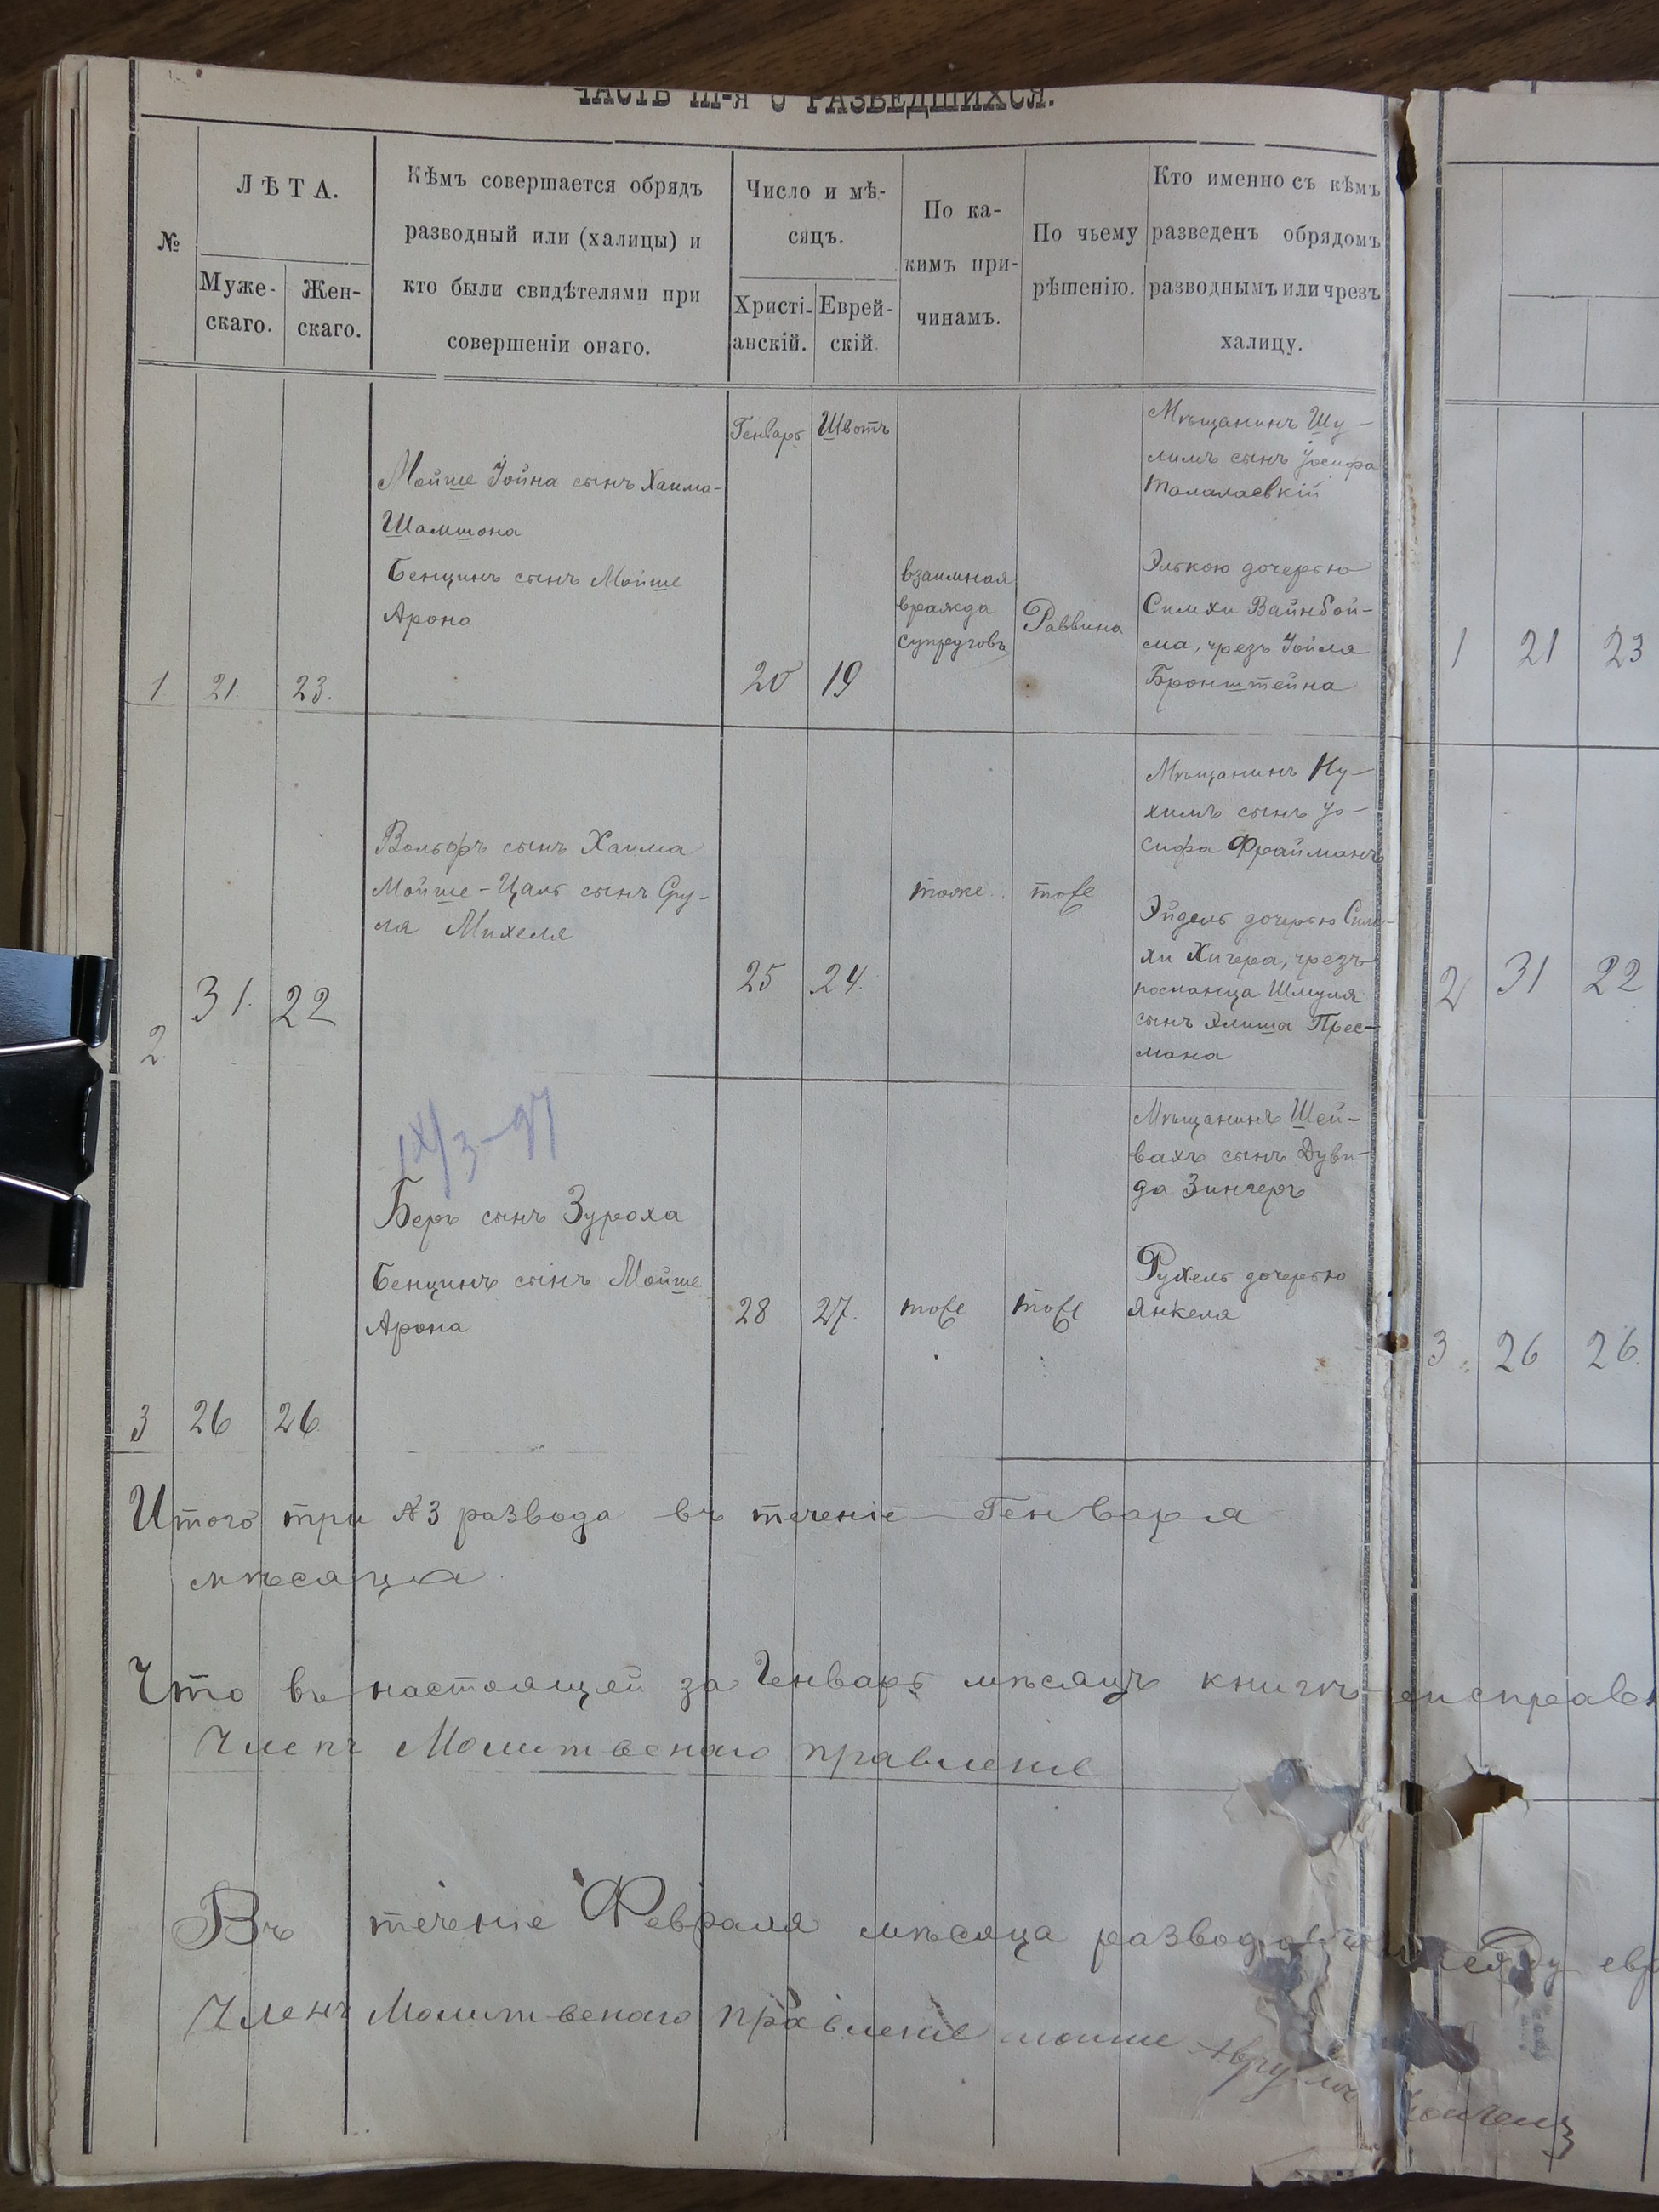 ЧАСТЬ III-я О РАЗВЕДШИХСЯ.
№
ЛѢТА.
Муже-
скаго.
Жен-
скаго.
Кѣмъ совершается обрядъ
разводный или (халицы) и
кто были свидѣтелями при
совершеніи онаго.
Число и мѣ-
сяцъ.
Христі-
анскій.
Еврей-
скій.
По ка-
кимъ при-
чинамъ.
По чьему
рѣшенію.
Кто именно съ кѣмъ
разведенъ обрядомъ
разводнымъ или чрезъ
халицу.
1
21.
23.
Мойше Іойна сынъ Хаима-
Шамшона
Бенцинъ сынъ Мойше
Арона
Генварь
20
Швотъ
19
взаимная
вражда
супруговъ
Раввина
Мѣщанинъ Шу-
лимъ сынъ Іосифа
Талалаевкій
Элькою дочерью
Симхи Вайнбой-
ма, чрезъ Іойля
Бронштейна
1 21 23
2
31.
22
Вольфъ сынъ Хаима
Мойше-Цаль сынъ Сру-
ля Михеля
25
24.
тоже
тоже
Мѣщанинъ Ну-
химъ сынъ Іо-
сифа Фрайманъ
Эйдель дочерью Сим-
хи Хигера, чрезъ
посланца Шмуля
сынъ Элиша Прес-
мана
2 31 22
3
26
26
IX/3-97
Беръ сынъ Зуроха
Бенцинъ сынъ Мойше
Арона
28
27.
тоже
тоже
Мѣщанинъ Шей-
вахъ сынъ Дуви-
да Зингеръ
Рухель дочерью
Янкеля
3 26 26
Итого три №3 развода въ теченіе Генваря
мѣсяца
Что въ настоящей за Генварь мѣсяцъ книгѣ
Членъ Молитвенаго правленіе
Въ теченіе Февраля мѣсяца между евр
Членъ Молитвенаго правленіе моише